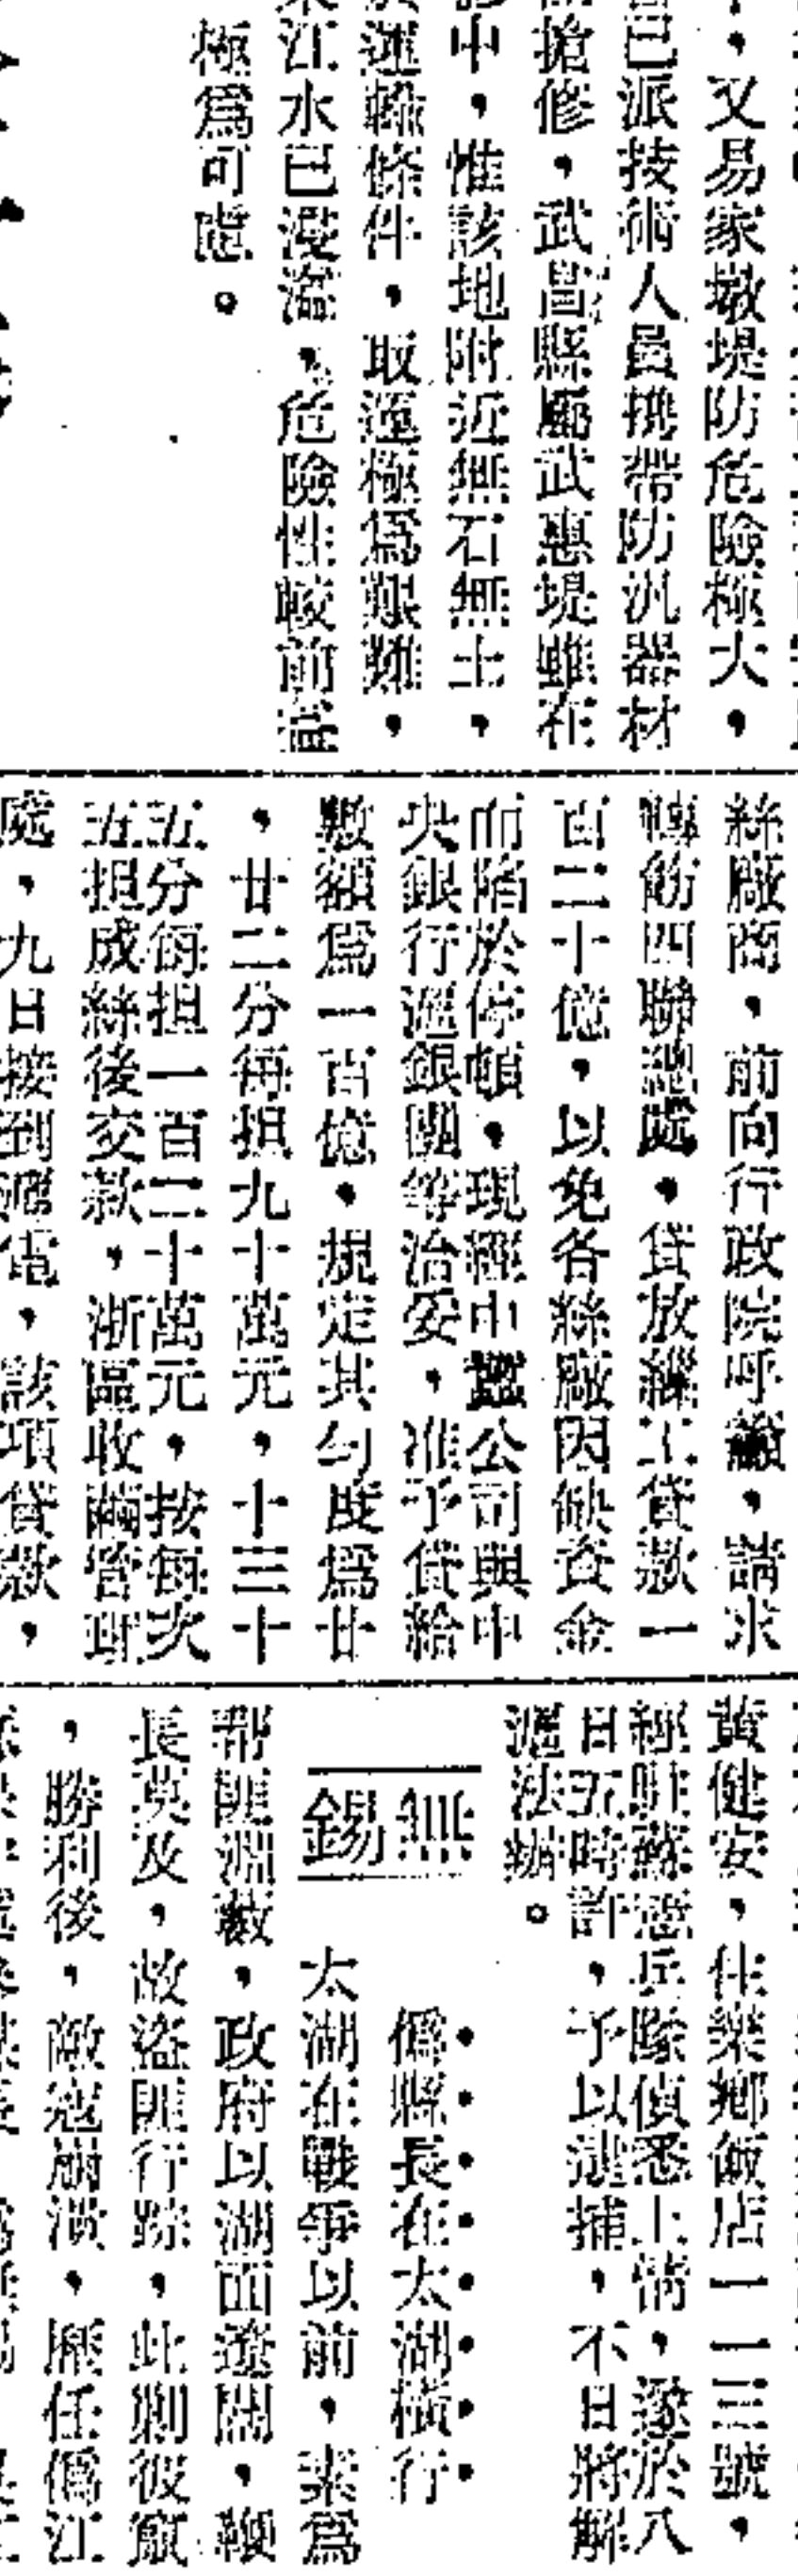 ，又易家墩堤防危險極大，
已派技術人員携帶防汎器材
搶修，武昌縣屬武惠堤雖在
中，惟該地附近無石無土，
運輸條件，取運極爲艱難，
江水已漫溢，危險性較前益
極爲可慮。
絲廠商，前向行政院呼籲，請求
轉飭四聯總處，貸放繅工貸款一
百二十億，以免各絲廠因缺資金
而陷於停頓，現經中蠶公司與中
央銀行滬銀團等洽妥，准予貸給
數額爲一百億，規定其勻度爲廿
，廿二分每担九十萬元，十三十
五分每担一百二十萬元，按每次
五担成絲後交款，浙區收繭管理
處，九日接到滬電，該項貸款，
黃健安，住樂鄉飯店一一三號，
經駐蘇憲兵隊偵悉上情，遂於八
日五時許，予以逮捕，不日將解
滬法辦。
無錫
僞縣長在太湖橫行
太湖在戰爭以前，素爲
帮匪淵藪，政府以湖面遼闊，鞭
長莫及，故盜匪行跡，此剿彼竄
，勝利後，敵寇崩潰，歷任僞江